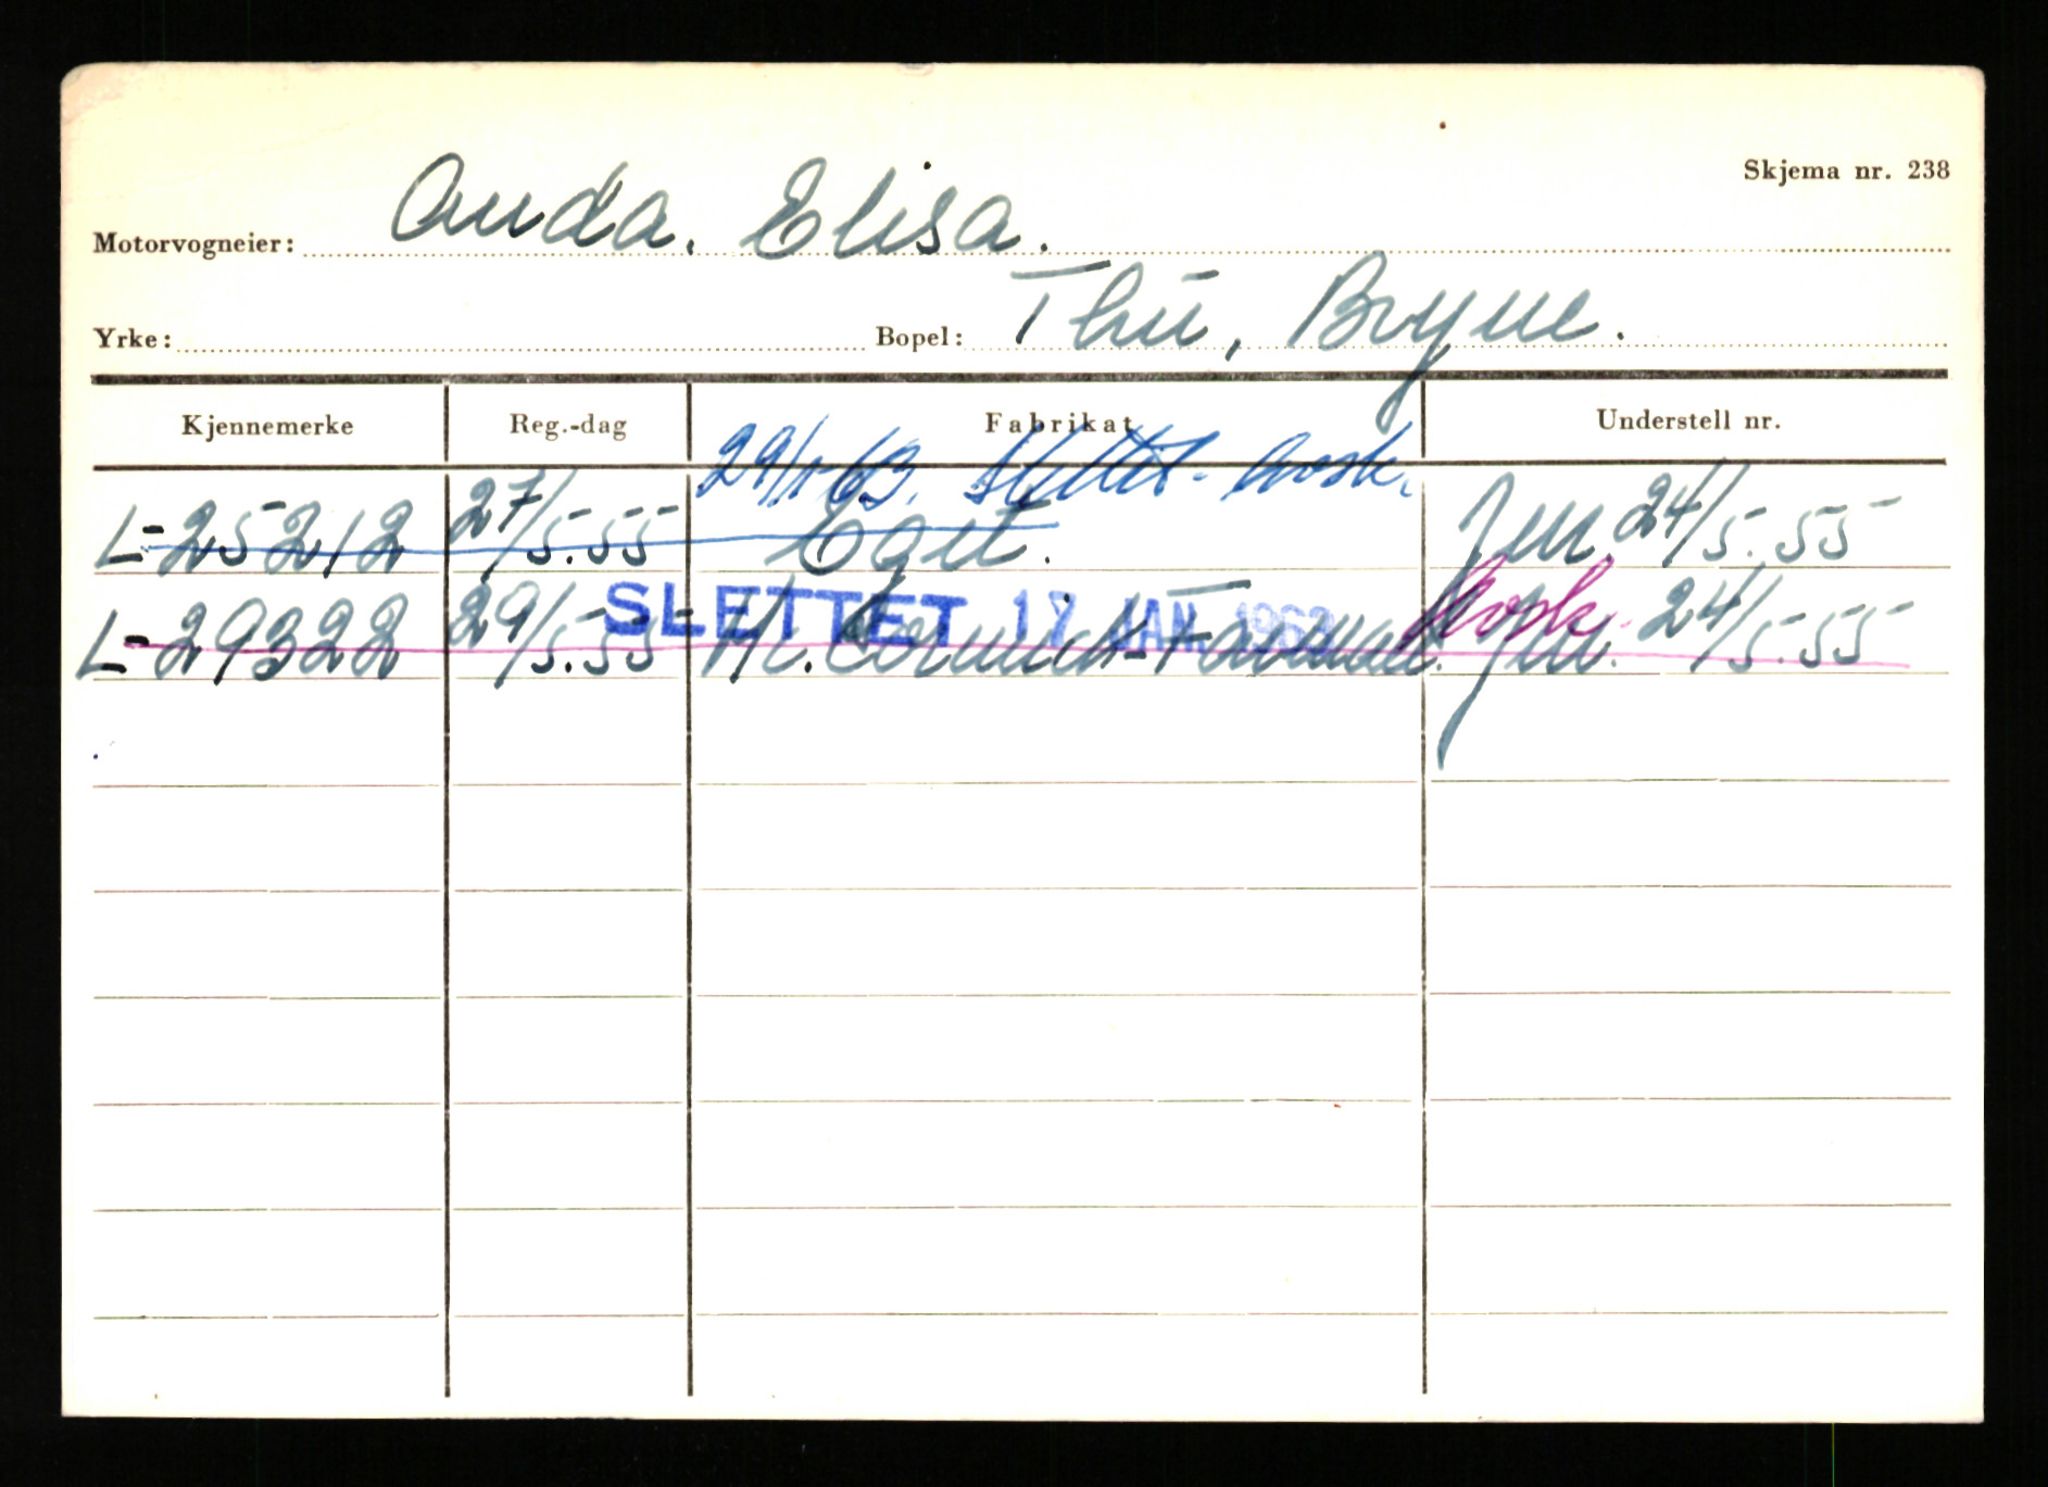 Skjema nr. 238
Motorvogneier: Anda. Elisa.
Yrke: Bopel: Thu, Bryne.
Kjennemerke Reg.-dag Fabrikat Understell nr.
29/1-63. Slettet. Avsk.
L-25212 27/5.55 Eget. 24/5.55
Avsk.
L-29322 29/5.55 Mc.Cormick-Farmall. 24/5.55
SLETTET 17 JAN. 1963